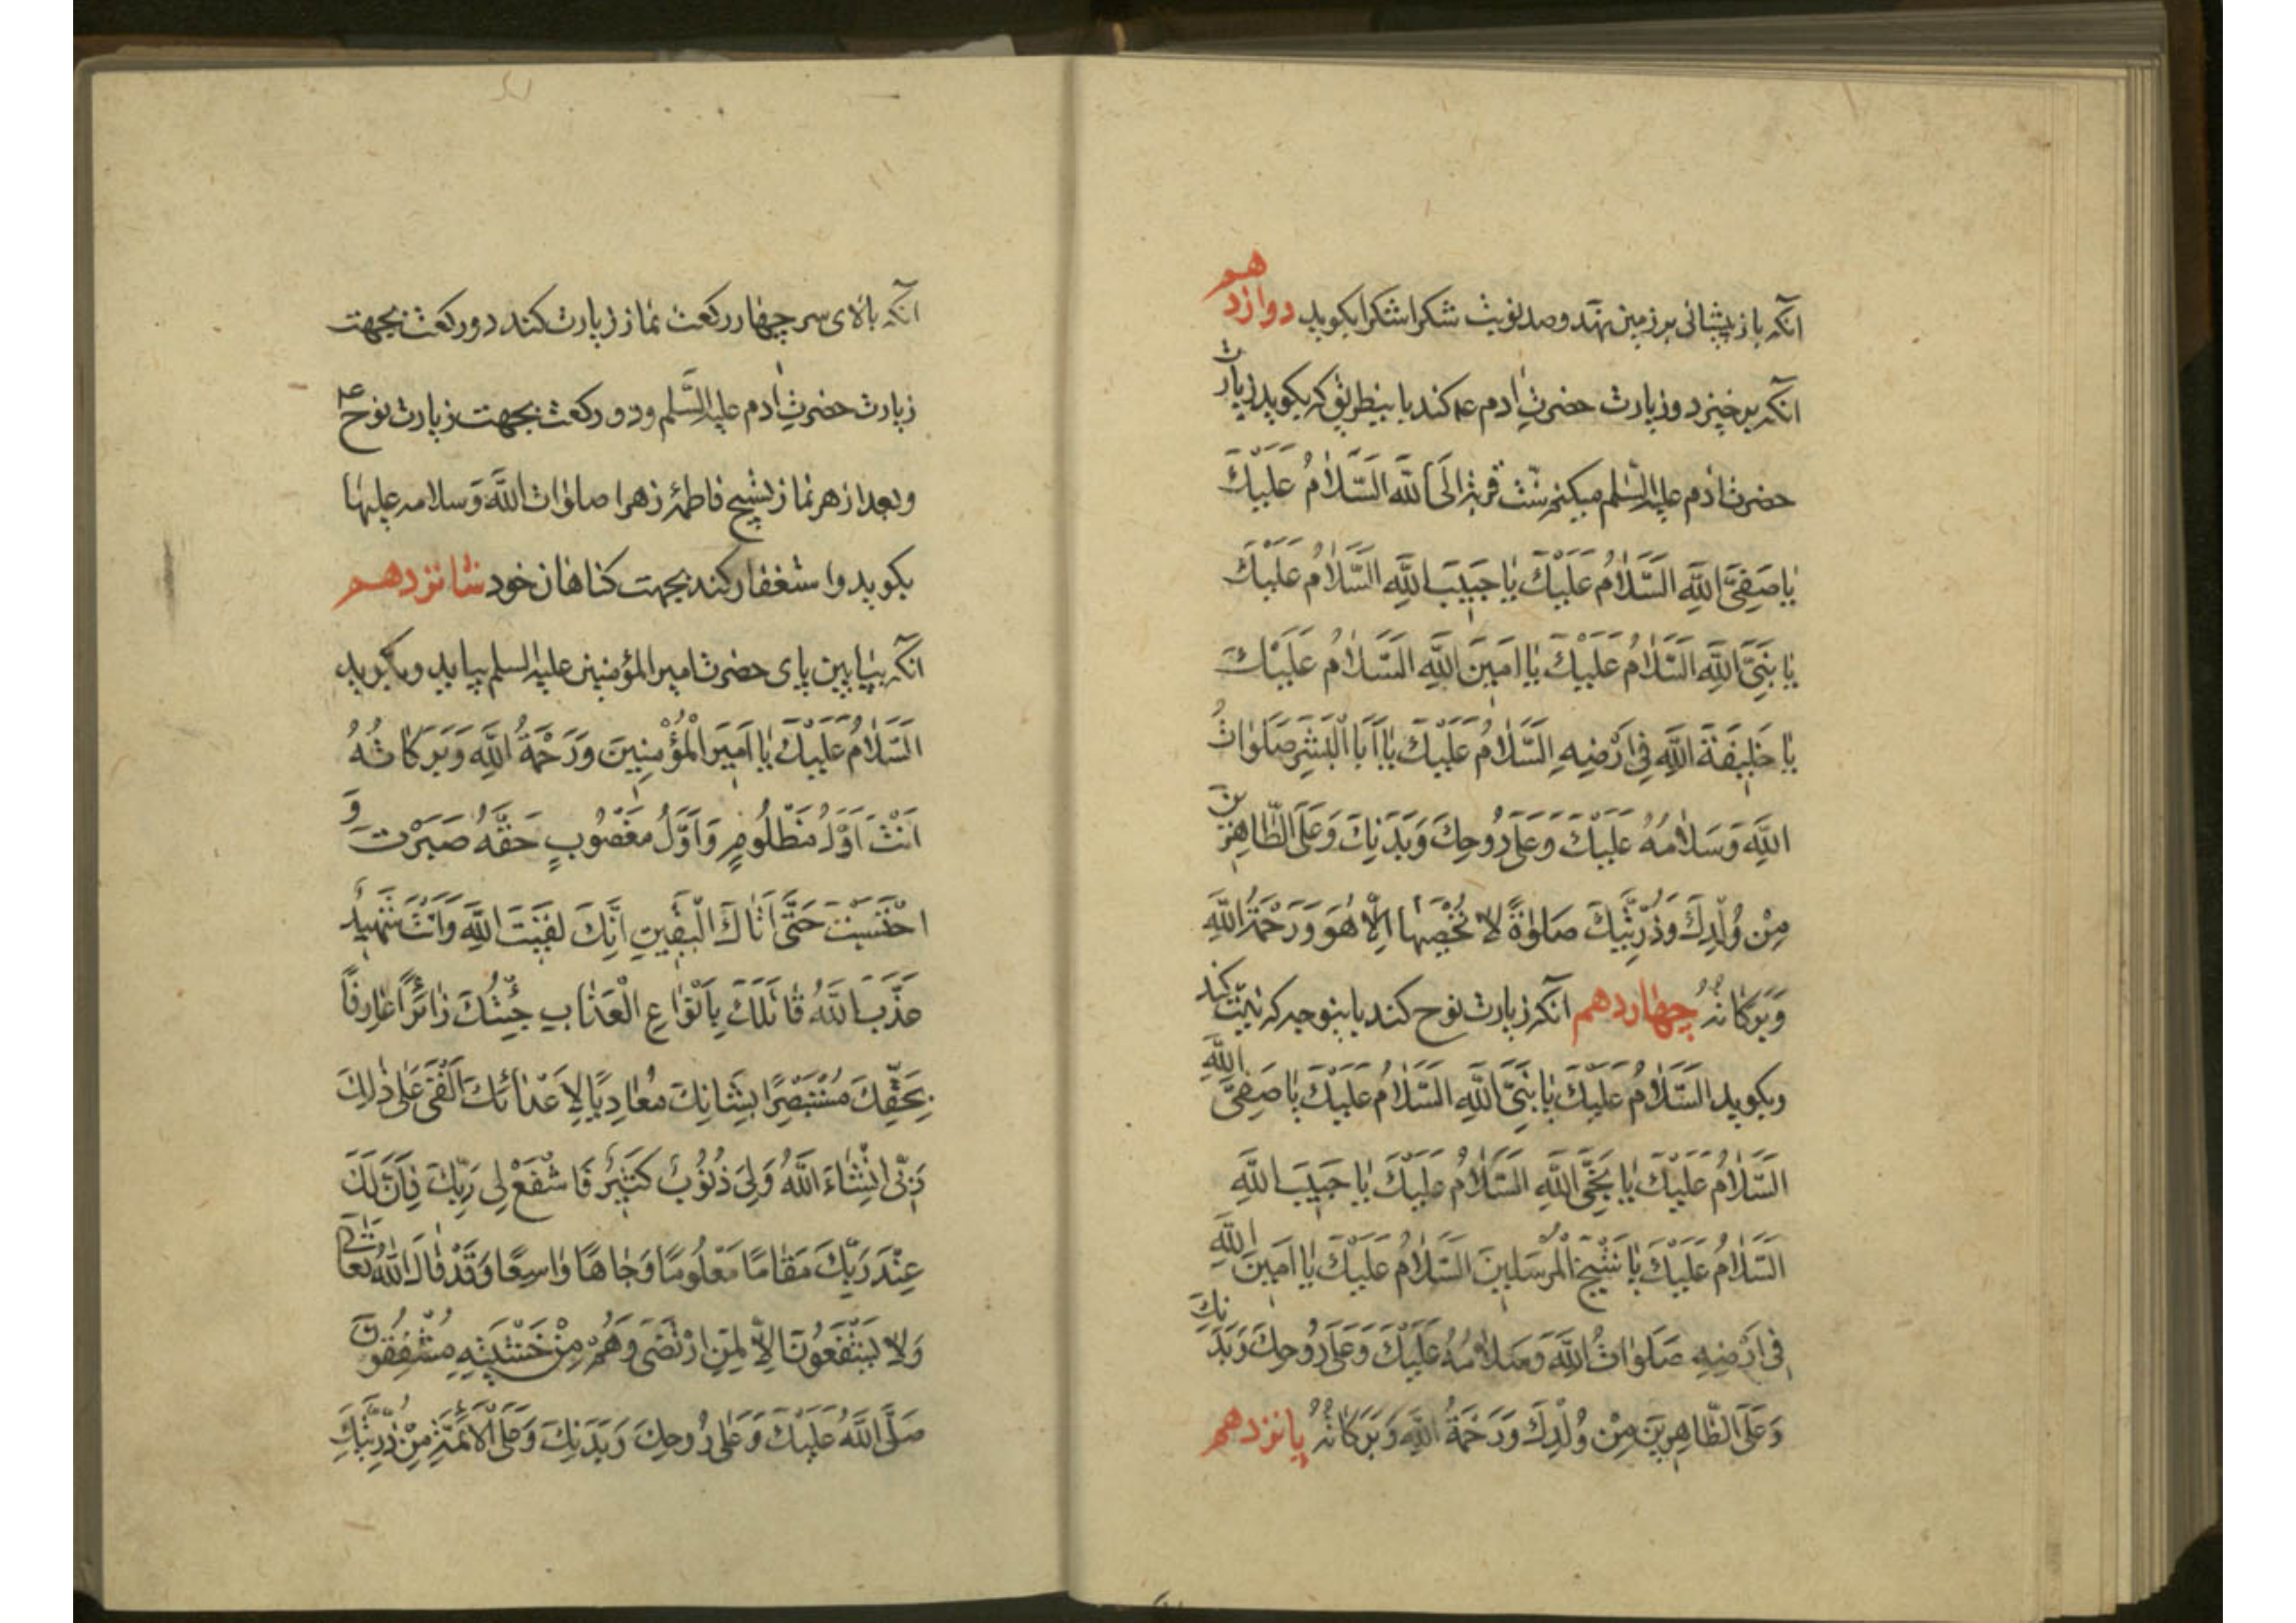 آنکه باز پیشانی بر زمین نهد و صد نوبت شکرا شکرا بکوید دوازدهم
آنکه برخیزد و زیارت حضرتِ آدم عم کند باینطریق که بکوید زیارت
حضرت آدم علیه السّلم میکنم سنّت قربة اِلَی اللّه اَلسَّلامُ عَلَیْكَ
یا صَفِیَّ اللّهِ السَّلامُ عَلَیْكَ یا حَبیبَ اللّهِ السَّلامُ عَلَیْكَ
یا نَبِیَّ اللّهِ السَّلامُ عَلَیْكَ یا اَمینَ اللّهِ السَّلامُ عَلَیْكَ
یا خَلیفَةَ اللّهِ فی اَرْضِهِ السَّلامُ عَلَیْكَ یا اَبَا الْبَشَرِ صَلَواتُ
اللّهِ وَ سَلامُهُ عَلَیْكَ وَ عَلی رُوحِكَ وَ بَدَنِكَ وَ عَلَی الطّاهِرینَ
مِنْ وُلْدِكَ وَ ذُرِّیَّتِكَ صَلوةً لا یُحْصیها اِلّا هُوَ وَ رَحْمَةُ اللّهِ
وَ بَرَکاتُهُ چهاردهم آنکه زیارت نوح کند باینوجه که نیّت کند
وبکوید السَّلامُ عَلَیْكَ یا نَبِیَّ اللّهِ السَّلامُ عَلَیْكَ یا صَفِیَّ اللّهِ
السَّلامُ عَلَیْكَ یا نَجِیَّ اللّهِ السَّلامُ عَلَیْكَ یا حَبیبَ اللّهِ
السَّلامُ عَلَیْكَ یا شَیْخَ الْمُرْسَلینَ السَّلامُ عَلَیْكَ یا اَمینَ اللّهِ
فی اَرْضِهِ صَلَواتُ اللّهِ وَ سَلامُهُ عَلَیْكَ وَ عَلی رُوحِكَ وَ بَدَنِكَ
وَ عَلَی الطّاهِرینَ مِنْ وُلْدِكَ وَ رَحْمَةُ اللّهِ وَ بَرَکاتُهُ پانزدهم
آنکه بالای سر چهار رکعت نماز زیارت کند دو رکعت بجهت
زیارت حضرتِ آدم علیه السَّلم و دو رکعت بجهت زیارت نوح عم
و بعد از هر نماز تسبیح فاطمهٔ زهرا صلوات اللّه و سلامه علیها
بکوید و استغفار کند بجهت کناهان خود شانزدهم
آنکه بپایین پای حضرت امیرالمؤمنین علیه السلم بیاید و بکوید
السَّلامُ عَلَیْكَ یا اَمیرَ الْمُؤْمِنینَ وَ رَحْمَةُ اللّهِ وَ بَرَکاتُهُ
اَنْتَ اَوَّلُ مَظْلُومٍ وَ اَوَّلُ مَغْصُوبٍ حَقَّهُ صَبَرْتَ وَ
احْتَسَبْتَ حَتّی اَتاكَ الْیَقینِ اِنَّكَ لَقیتَ اللّهِ وَ اَنْتَ شَهیدٌ
عَذَّبَ اللّهُ قاتِلَكَ بِاَنْواعِ الْعَذابِ جِئْتُكَ زائِرًا عارِفًا
بِحَقِّكَ مُسْتَبْصِرًا بِشَأنِكَ مُعادِیًا لِاَعْدائِكَ اَلْقی عَلی ذلِكَ
رَبّی اِنْشاءَ اللّهُ وَ لی ذُنُوبٌ کَثیرٌ فَاشْفَعْ لی رَبِّكَ فَاِنَّ لَكَ
عِنْدَ رَبِّكَ مَقامًا مَعْلُومًا وَ جاهًا واسِعًا وَ قَدْ قالَ اللّهُ تَعالی
وَ لا یَشْفَعُونَ اِلّا لِمَنِ ارْتَضی وَ هُمْ مِنْ خَشْیَتِهِ مُشْفِقُونَ
صَلَّی اللّهُ عَلَیْكَ وَ عَلی رُوحِكَ وَ بَدَنِكَ وَ عَلَی الْاَئِمَّةِ مِنْ ذُرِّیَّتِكَ